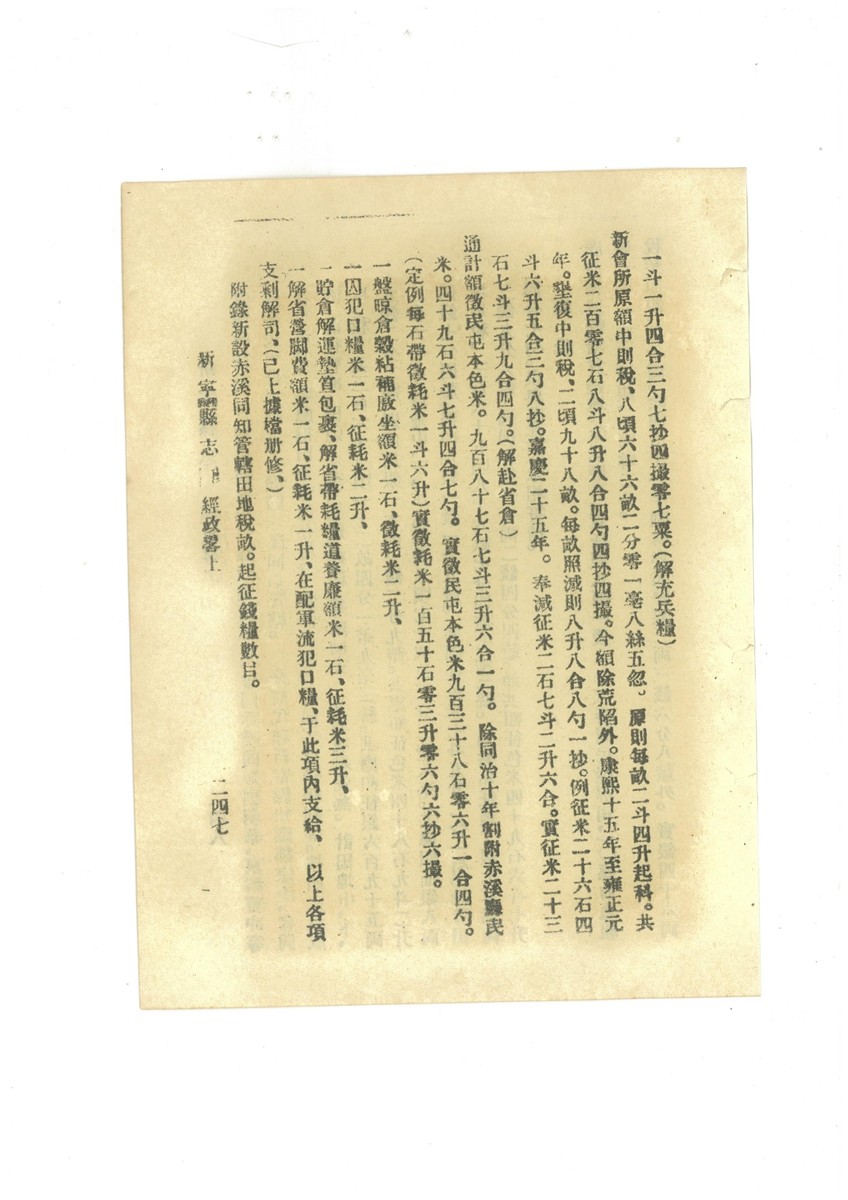 一斗一升四合三勺七抄四撮零七粟。(解充兵糧)
新會所原額中則稅、八頃六十六畝二分零一毫八絲五忽。原則每畝二斗四升起科。共
征米二百零七石八斗八升八合四勺四抄四撮。今額除荒陷外。康熙十五年至雍正元
年。墾復中則稅、二頃九十八畝。每畝照減則八升八合八勺一抄。例征米二十六石四
斗六升五合三勺八抄。嘉慶二十五年。奉減征米二石七斗二升六合。實征米二十三
石七斗三升九合四勺。(解赴省倉)
通計額徵民屯本色米。九百八十七石七斗三升六合一勺。除同治十年割附赤溪廳民
米。四十九石六斗七升四合七勺。實徵民屯本色米九百三十八石零六升一合四勺。
(定例每石帶徵耗米一斗六升)實徵耗米一百五十石零三升零六勺六抄六撮。
一盤晾倉穀粘補廒坐額米一石、徵耗米二升、
一囚犯口糧米一石、征耗米二升、
一貯倉解運墊笪包裹、解省帶耗糧道養廉額米一石、征耗米三升、
一解省營脚費額米一石、征耗米一升、在配軍流犯口糧、于此項內支給、以上各項
支剩解司、(已上據檔册修、)
附錄新設赤溪同知管轄田地稅畝。起征錢糧數目。
新寧縣志 經政畧上
二四七